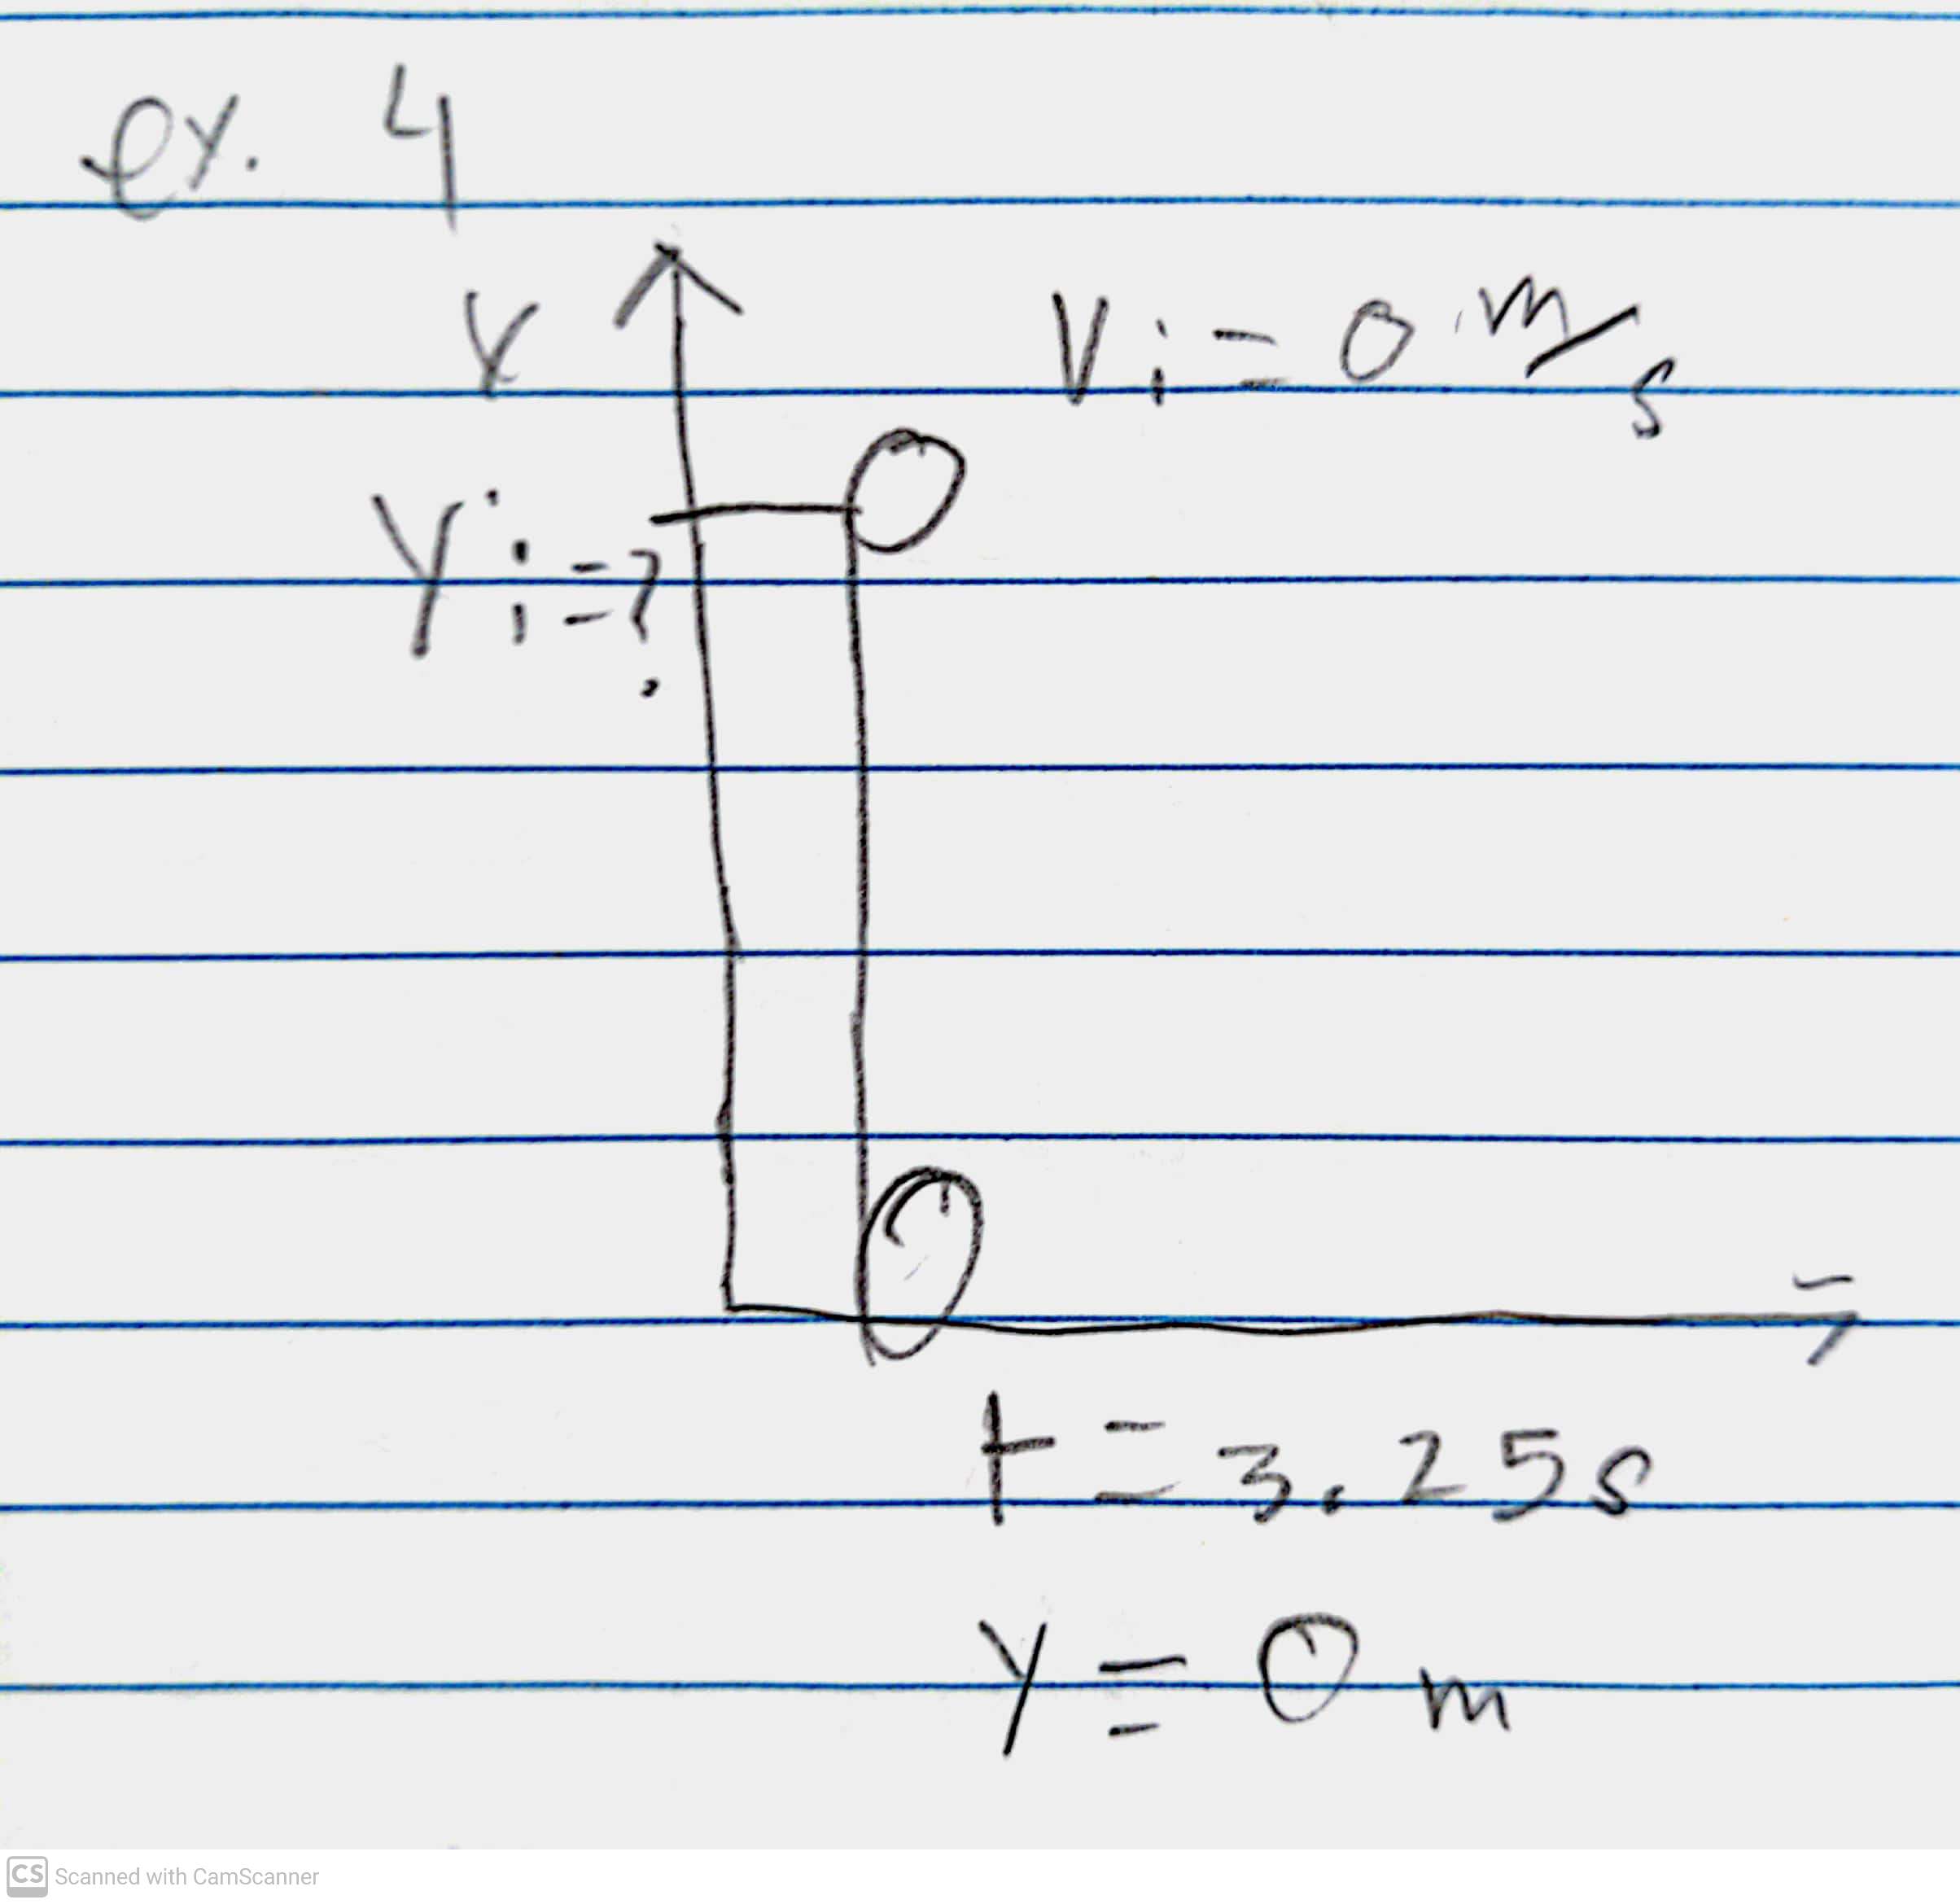 ex. 4
Y
Vi = 0 m/s
Yi = ?
t = 3.25s
y = 0 m
CS Scanned with CamScanner